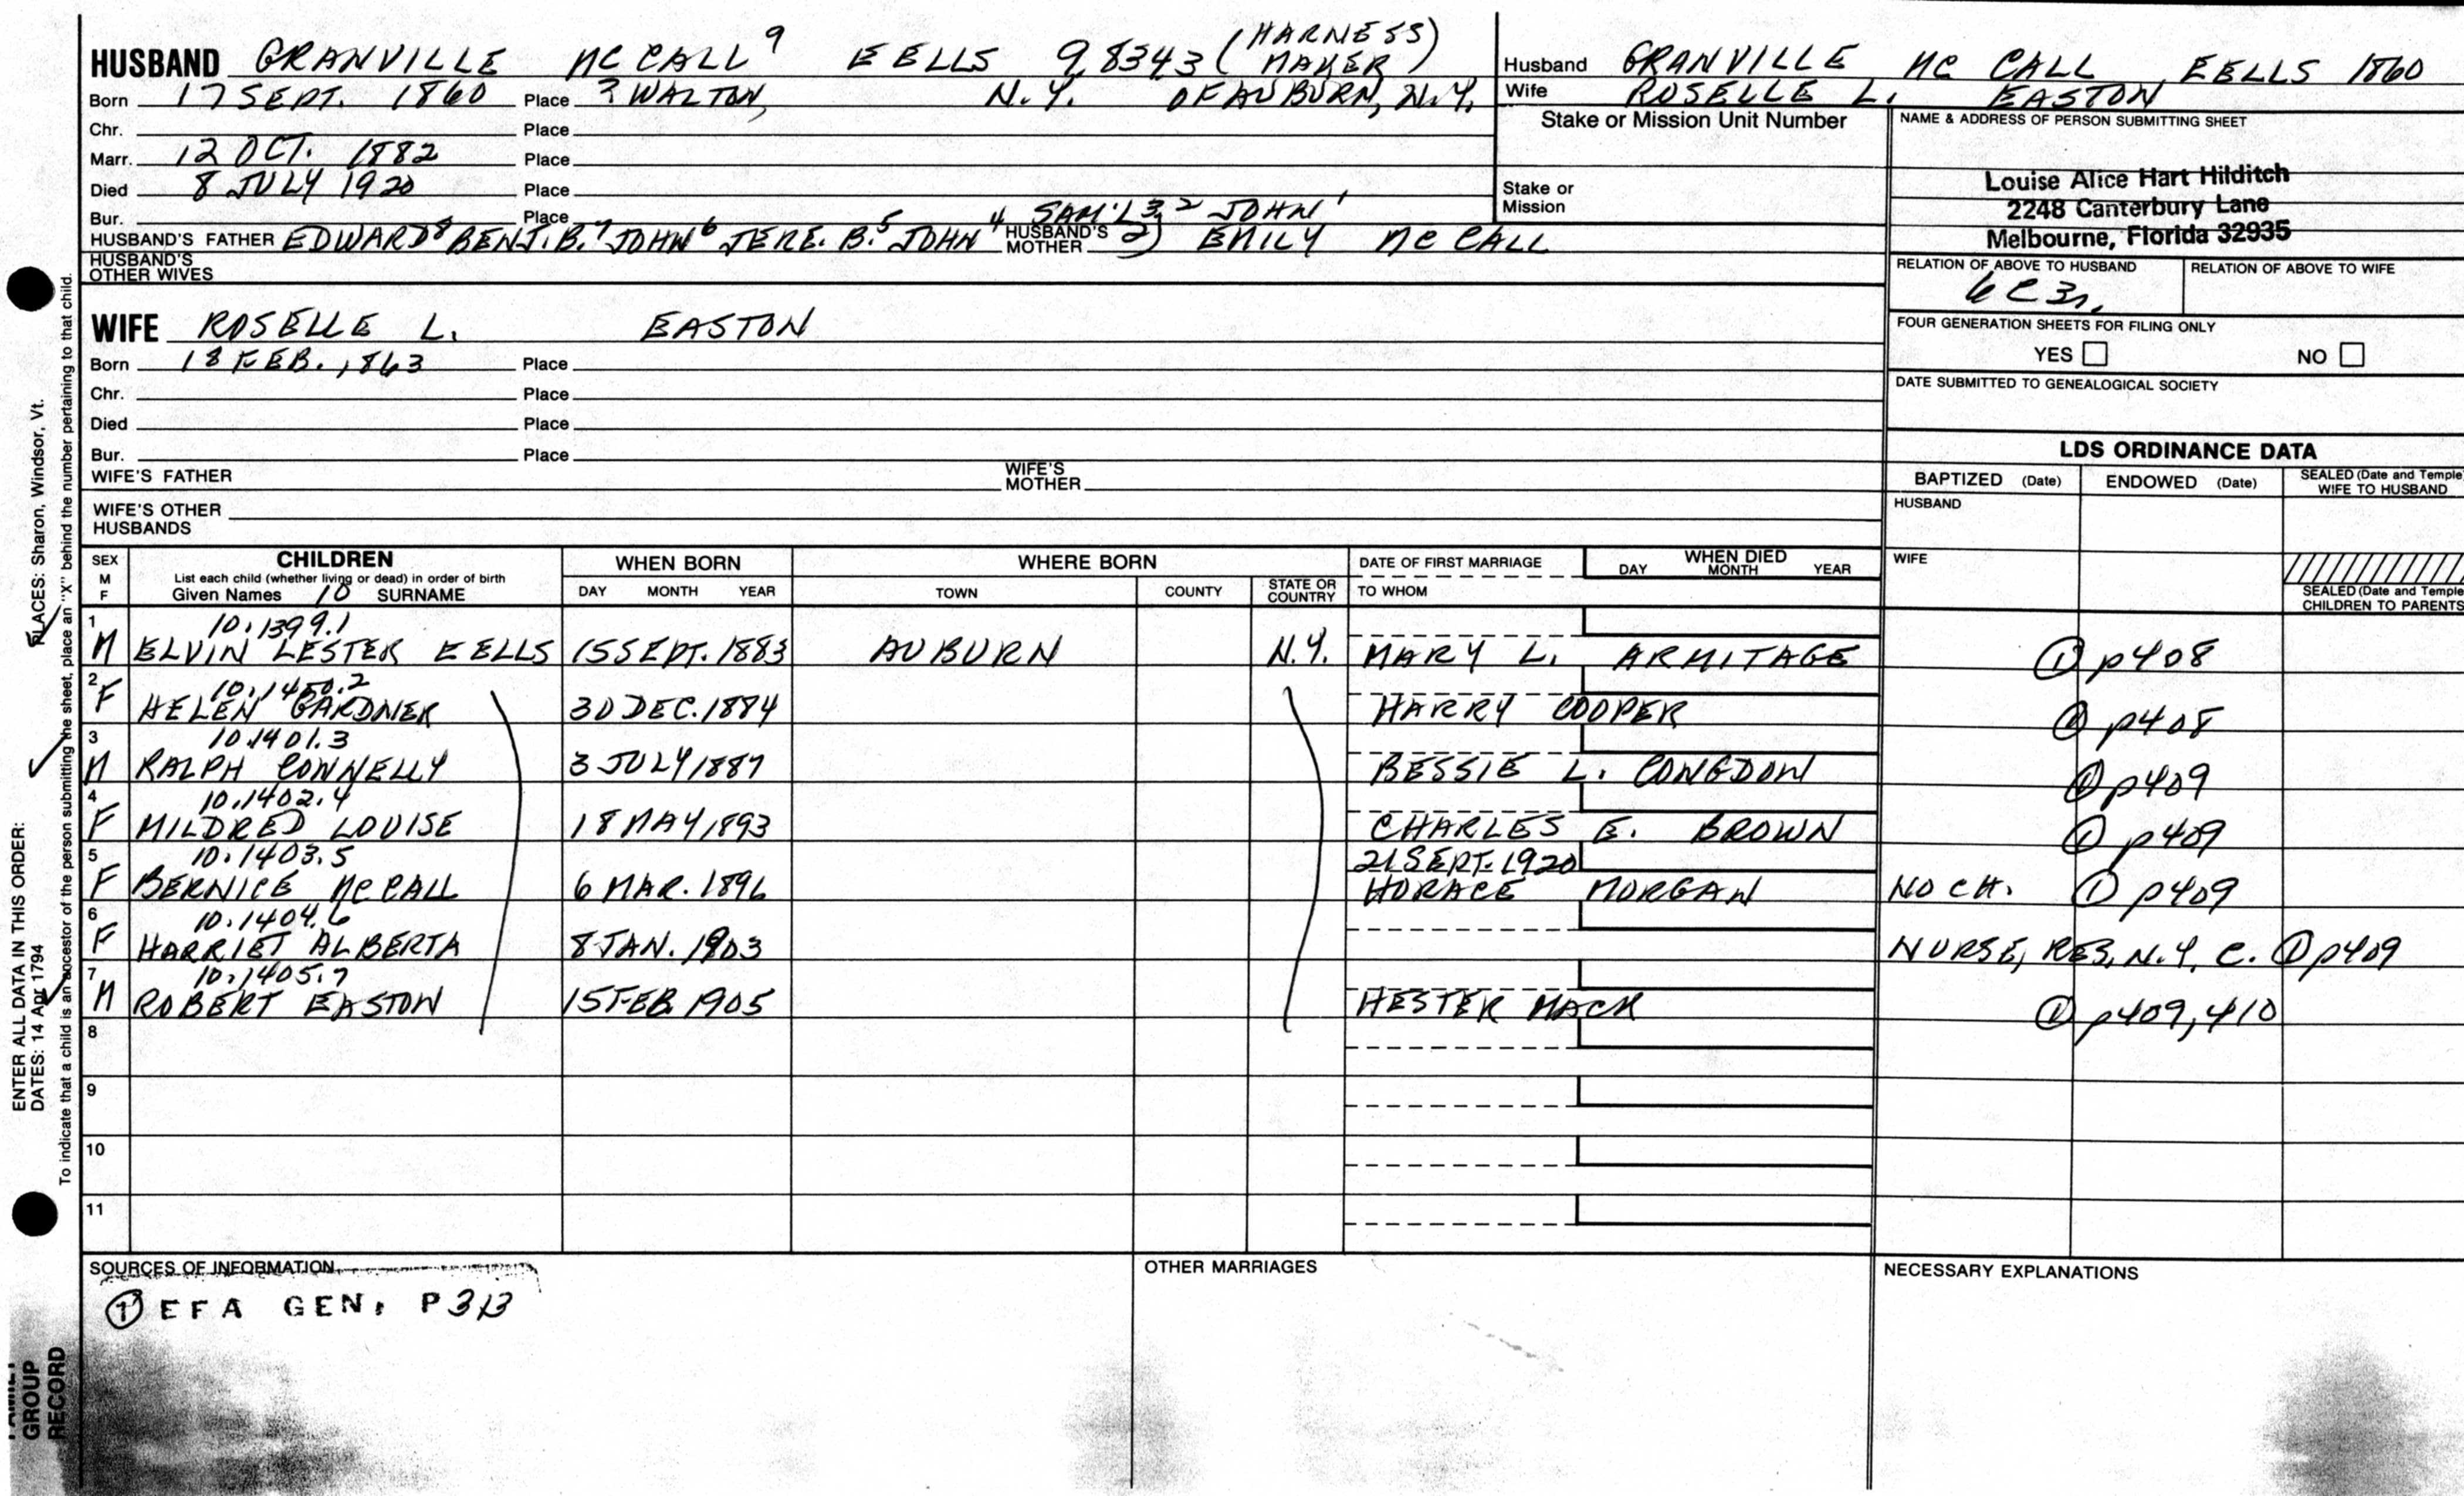 HUSBAND GRANVILLE MC CALL 9 EELLS 9.8343 (HARNESS MAKER)
Born 17 SEPT. 1860 Place ? WALTON, N.Y. OF AUBURN, N.Y.
Chr. Place
Marr. 12 OCT. 1882 Place
Died 8 JULY 1920 Place
Bur. Place SAM'L 3 2 JOHN 1
HUSBAND'S FATHER EDWARD 8 BENJ. B. 7 JOHN 6 JERE. B. 5 JOHN 4 HUSBAND'S MOTHER 2) EMILY MC CALL
HUSBAND'S OTHER WIVES
Husband GRANVILLE MC CALL EELLS 1860
Wife ROSELLE L. EASTON
Stake or Mission Unit Number
Stake or Mission
NAME & ADDRESS OF PERSON SUBMITTING SHEET
Louise Alice Hart Hilditch
2248 Canterbury Lane
Melbourne, Florida 32935
RELATION OF ABOVE TO HUSBAND RELATION OF ABOVE TO WIFE
6C3r.
FOUR GENERATION SHEETS FOR FILING ONLY
YES NO
DATE SUBMITTED TO GENEALOGICAL SOCIETY
WIFE ROSELLE L. EASTON
Born 18 FEB. 1863 Place
Chr. Place
Died Place
Bur. Place
WIFE'S FATHER WIFE'S MOTHER
WIFE'S OTHER HUSBANDS
LDS ORDINANCE DATA
BAPTIZED (Date) ENDOWED (Date) SEALED (Date and Temple) WIFE TO HUSBAND
HUSBAND
WIFE
SEALED (Date and Temple) CHILDREN TO PARENTS
SEX M F
CHILDREN
List each child (whether living or dead) in order of birth
Given Names 10 SURNAME
WHEN BORN
DAY MONTH YEAR
WHERE BORN
TOWN COUNTY STATE OR COUNTRY
DATE OF FIRST MARRIAGE
TO WHOM
WHEN DIED
DAY MONTH YEAR
1 10.1399.1
M ELVIN LESTER EELLS 15 SEPT. 1883 AUBURN N.Y. MARY L. ARMITAGE ① p408
2 10.1450.2
F HELEN GARDNER 30 DEC. 1884 HARRY COOPER ① p408
3 10.1401.3
M RALPH CONNELLY 3 JULY 1887 BESSIE L. CONGDON ① p409
4 10.1402.4
F MILDRED LOUISE 18 MAY 1893 CHARLES E. BROWN ① p409
5 10.1403.5 21 SEPT. 1920
F BERNICE MCCALL 6 MAR. 1896 HORACE MORGAN NO CH. ① p409
6 10.1404.6
F HARRIET ALBERTA 8 JAN. 1903 NURSE, RES. N.Y.C. ① p409
7 10.1405.7
M ROBERT EASTON 15 FEB. 1905 HESTER MACK ① p409, 410
8
9
10
11
SOURCES OF INFORMATION
① EFA GEN. P 313
OTHER MARRIAGES
NECESSARY EXPLANATIONS
ENTER ALL DATA IN THIS ORDER:
DATES: 14 Apr 1794 PLACES: Sharon, Windsor, Vt.
To indicate that a child is an ancestor of the person submitting the sheet, place an "X" behind the number pertaining to that child.
FAMILY GROUP RECORD